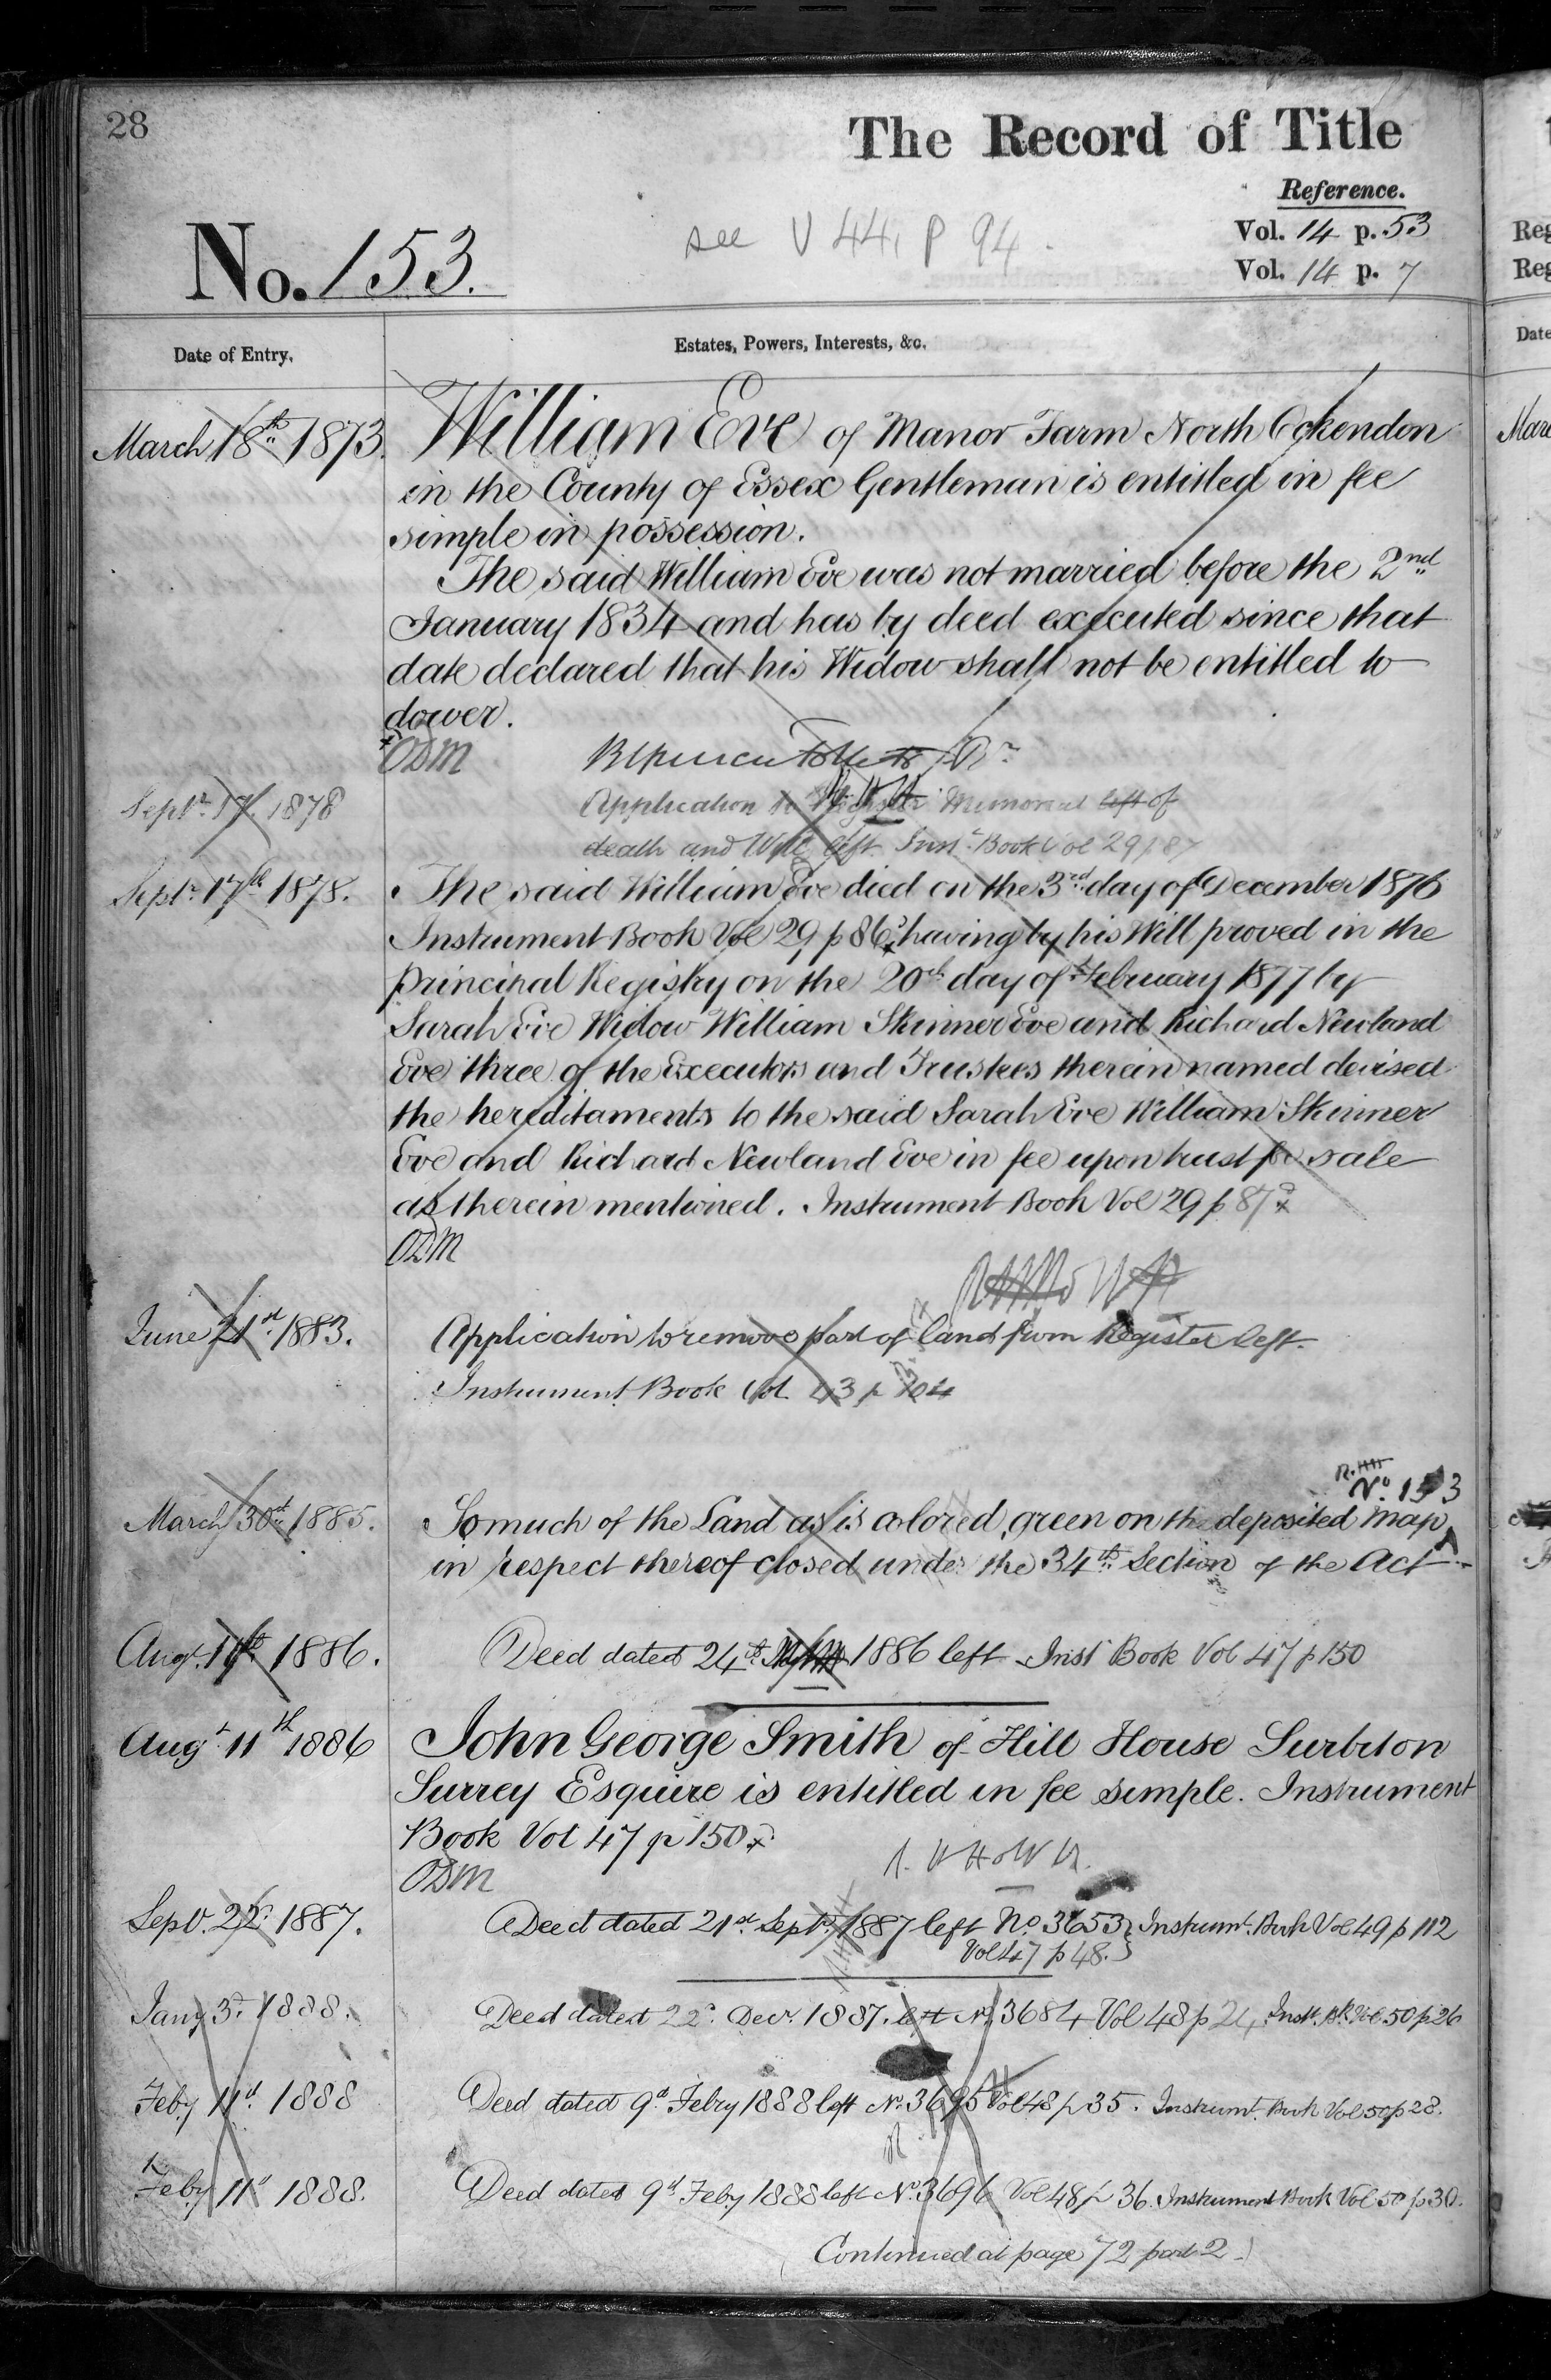 28
The Record of Title
Reference.
No. 153.
see V 44, p 94.
Vol. 14 p. 53
Vol. 14 p. 7
Date of Entry.
Estates, Powers, Interests, &c.
March 18th 1873.
William Eve of Manor Farm North Ockendon
in the County of Essex Gentleman is entitled in fee
simple in possession.
The said William Eve was not married before the 2nd
January 1834 and has by deed executed since that
date declared that his Widow shall not be entitled to
dower.
Septr. 17. 1878
Application to Register Memorial left of
death and Will left Inst. Book Vol 29 p 87
Septr. 17th 1878.
The said William Eve died on the 3rd day of December 1876
Instrument Book Vol 29 p 86 having by his Will proved in the
principal Registry on the 20th day of February 1877 by
Sarah Eve Widow William Skinner Eve and Richard Newland
Eve three of the Executors and Trustees therein named devised
the hereditaments to the said Sarah Eve William Skinner
Eve and Richard Newland Eve in fee upon trust for sale
as therein mentioned. Instrument Book Vol 29 p 87
June 21st 1883.
Application to remove part of land from Register left.
Instrument Book Vol 43 p 104
No. 153
March 30th 1885.
So much of the Land as is colored green on the deposited map
in respect thereof closed under the 34th Section of the Act
Augt. 11th 1886.
Deed dated 24th 1886 left Inst Book Vol 47 p 150
Augt 11th 1886
John George Smith of Hill House Surbiton
Surrey Esquire is entitled in fee simple. Instrument
Book Vol 47 p 150
Sept. 22. 1887.
Deed dated 21st Septr. 1887 left No. 3653 Instrumt. Book Vol 49 p 112
Vol 47 p 48.
Jany 3d. 1888.
Deed dated 22d. Decr. 1887. left No. 3684 Vol 48 p 24. Inst. Bk. Vol. 50 p 26
Feby 11th. 1888
Deed dated 9th Febry 1888 left No. 3695 Vol 48 p 35. Instrumt. Book Vol 50 p 28.
Feby 11th 1888.
Deed dated 9th Feby 1888 left No. 3696 Vol 48 p 36. Instrument Book Vol 50 p 30.
Continued at page 72 part 2